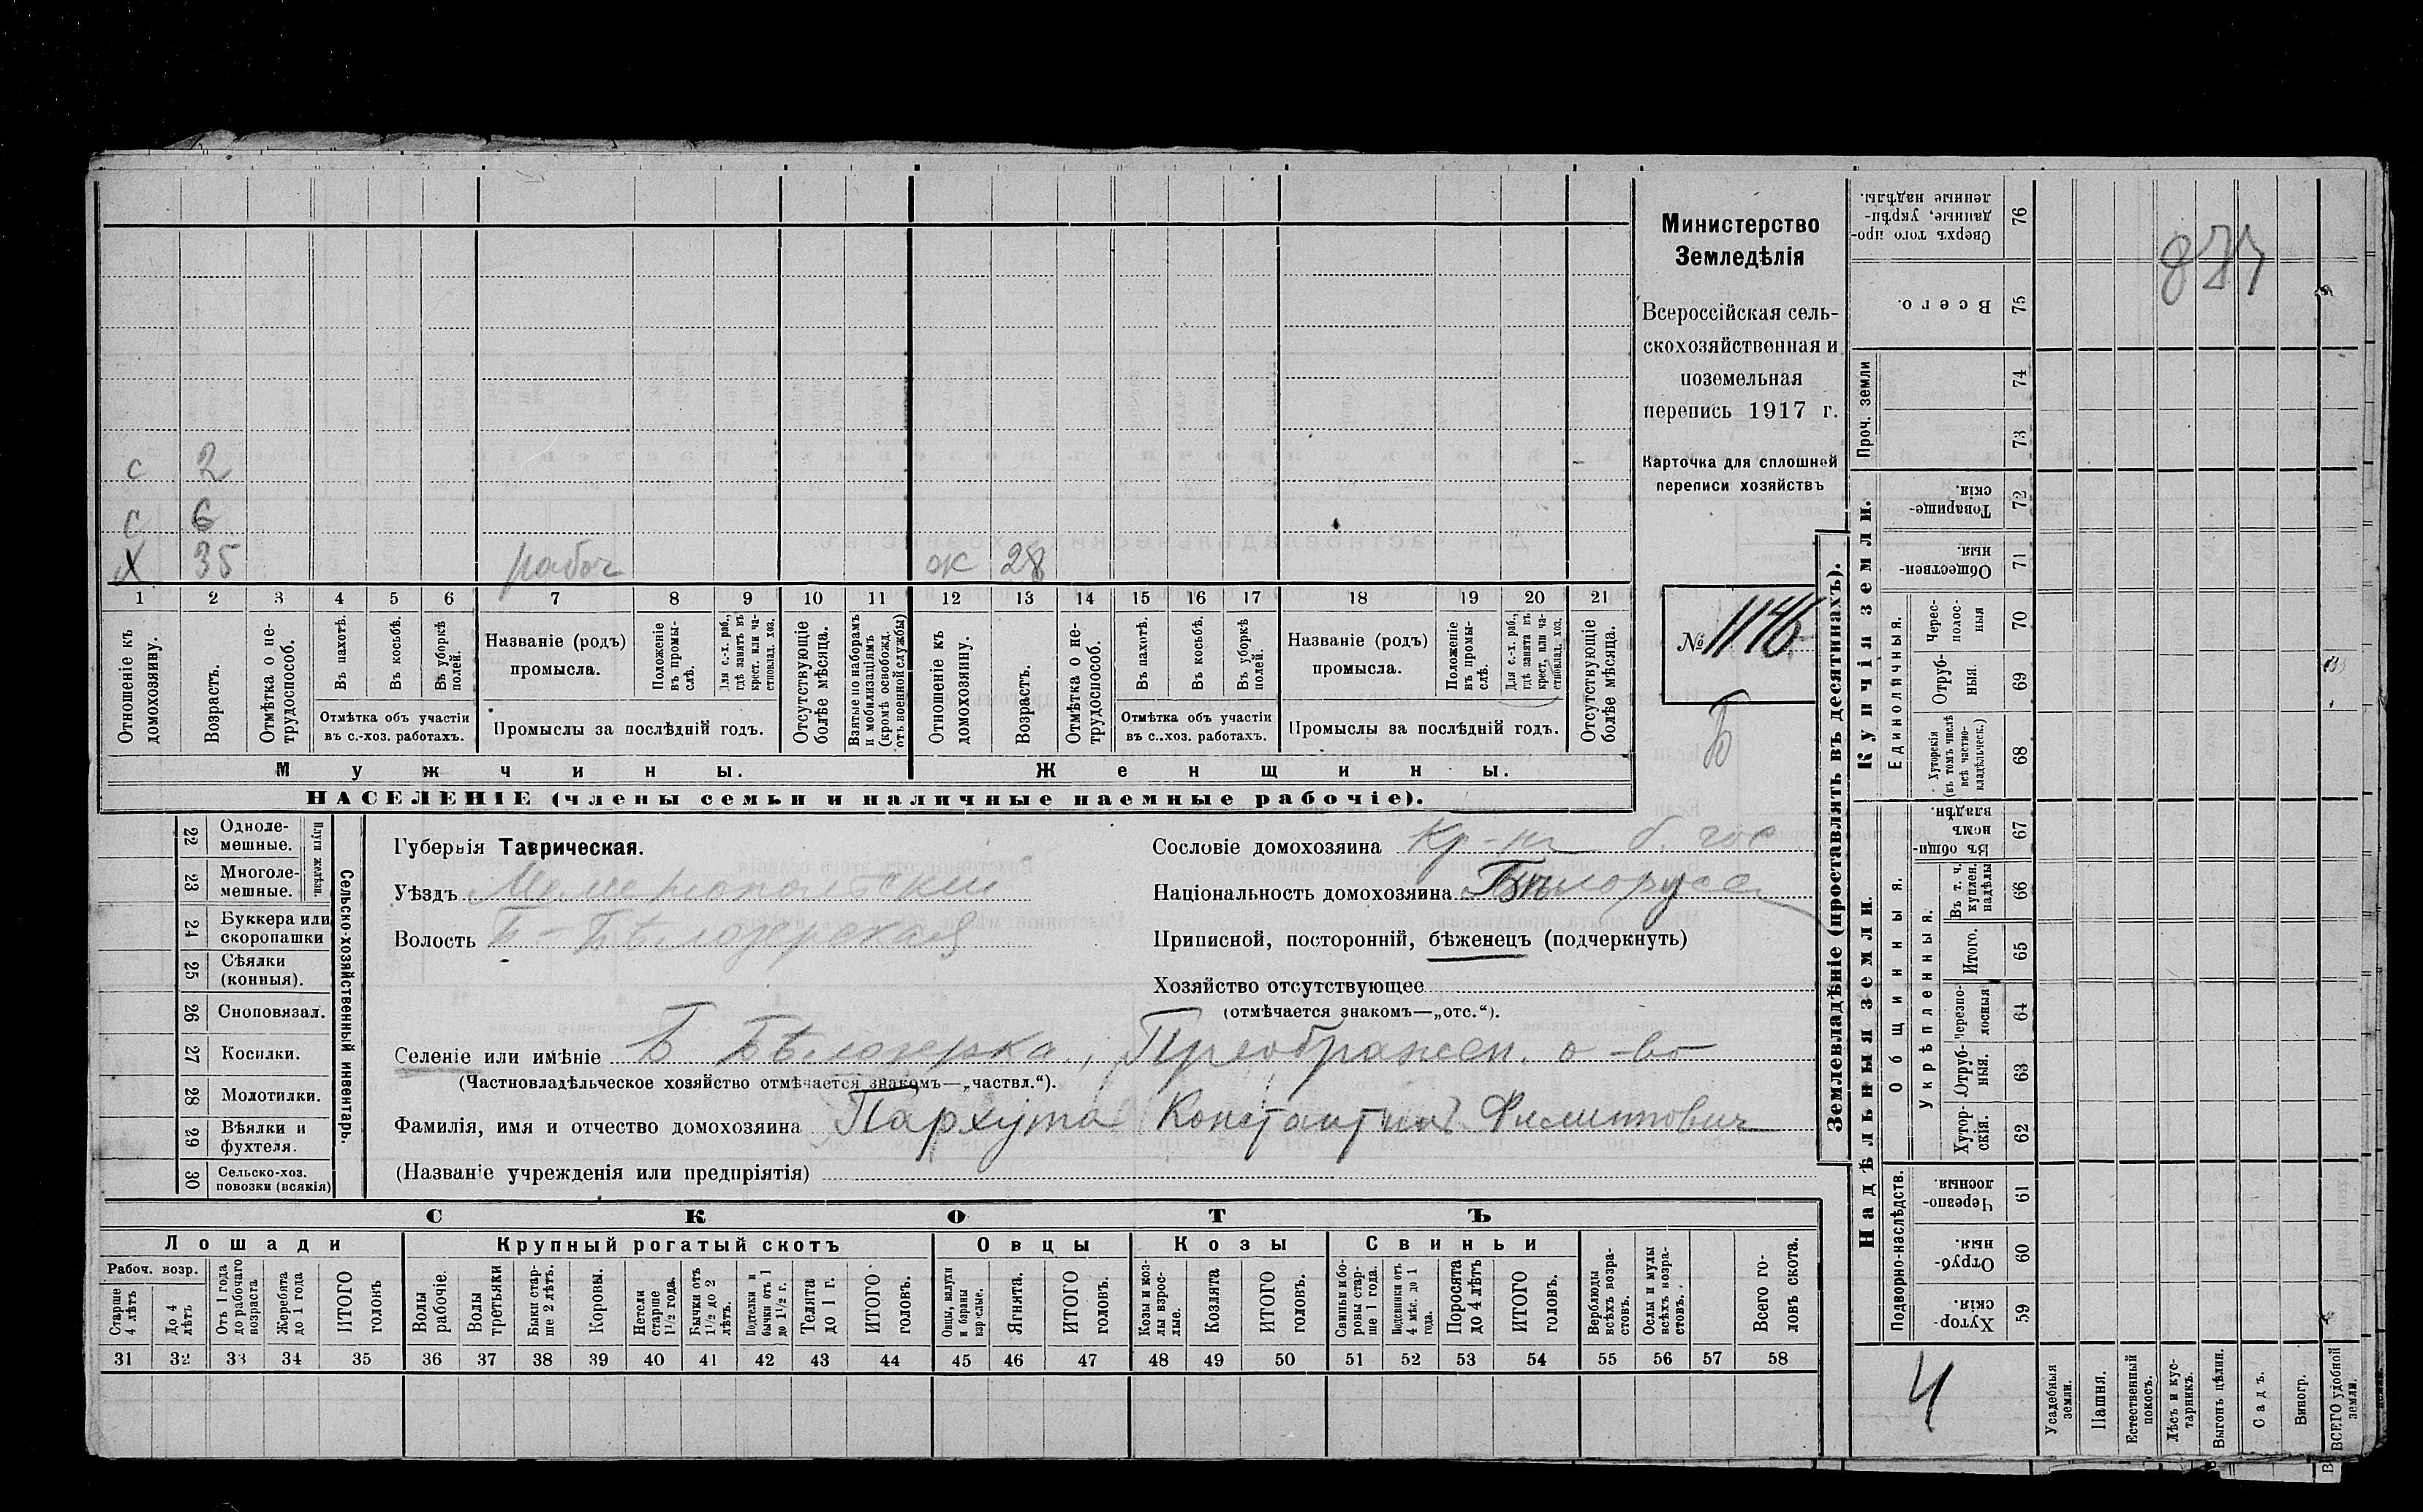 с 2
с 6
Х 35 рабоч ж 28
1 2 3 4 5 6 7 8 9 10 11 12 13 14 15 16 17 18 19 20 21
Отношеніе къ домохозяину.
Возрастъ.
Отмѣтка о не-
трудоспособ.
Въ пахотѣ.
Въ косьбѣ.
Въ уборкѣ полей.
Отмѣтка объ участіи
въ с.-хоз. работахъ.
Названіе (родъ)
промысла.
Положеніе въ промы-
слѣ.
Для с.-х. раб.,
гдѣ занятъ въ
крест. или ча-
стновлад. хоз.
Промыслы за послѣдній годъ.
Отсутствующіе
болѣе мѣсяца.
Взятые по наборамъ
и мобилизаціямъ
(кромѣ освобожд.
отъ военной службы)
Отношеніе къ
домохозяину.
Возрастъ.
Отмѣтка о не-
трудоспособ.
Въ пахотѣ.
Въ косьбѣ.
Въ уборкѣ
полей.
Отмѣтка объ участіи
въ с..хоз. работахъ.
Названіе (родъ)
промысла.
Положеніе
въ промы-
слѣ.
Для с.-х. раб.,
гдѣ занята въ
крест. или ча-
стновлад. хоз.
Промыслы за послѣдній годъ.
Отсутствующіе
болѣе мѣсяца.
Мужчины.
Женщины.
НАСЕЛЕНІЕ (члены семьи и наличные наемные рабочіе).
Министерство
Земледѣлія
Всероссійская сель-
скохозяйственная и
поземельная
перепись 1917 г.
Карточка для сплошной
переписи хозяйствъ
№ 1146
Б
22 Одноле-
мешные.
23 Многоле-
мешные.
Плуги желѣзн.
24 Буккера или
скоропашки
25 Сѣялки
(конныя).
26 Сноповязал.
27 Косилки.
28 Молотилки.
29 Вѣялки и
фухтеля.
30 Сельско-хоз.
повозки (всякія)
Сельско-хозяйственный инвентарь.
Губернія Таврическая.
Уѣздъ Мелитопольскій
Волость Б-Бѣлозерская
Сословіе домохозяина Кр-нъ б. гос
Національность домохозяина Бѣлорусс
Приписной, посторонній, бѣженецъ (подчеркнуть)
Хозяйство отсутствующее
(отмѣчается знакомъ—„отс.“).
Селеніе или имѣніе Б Бѣлозерка, Преображен. о-во
(Частновладѣльческое хозяйство отмѣчается знакомъ—„частвл.“).
Фамилія, имя и отчество домохозяина Пархута Константинъ Филиппович
(Названіе учрежденія или предпріятія)
СКОТЪ
Лошади
Крупный рогатый скотъ
Овцы
Козы
Свиньи
Рабоч. возр.
Старше
4 лѣтъ
До 4
лѣтъ
Отъ 1 года
до рабочаго
возраста
Жеребята
до 1 года
ИТОГО
головъ
Волы
рабочіе.
Волы
третьяки
Быки стар-
ше 2 лѣтъ.
Коровы.
Нетели
старше
1½ года.
Бычки отъ
1½ до 2
лѣтъ.
Подтелки и
бычки отъ 1
до 1½ г.
Телята
до 1 г.
ИТОГО
головъ.
Овцы, валухи
и бараны
взрослые.
Ягнята.
ИТОГО
головъ.
Козы и коз-
лы взрос-
лые.
Козлята
ИТОГО
головъ.
Свиньи и бо-
ровы стар-
ше 1 года.
Подсвинки отъ
4 мѣс. до 1
года.
Поросята
до 4 лѣтъ
ИТОГО
головъ.
Верблюды
всѣхъ возра-
стовъ.
Ослы и мулы
всѣхъ возра-
стовъ.
Всего го-
ловъ скота.
31 32 33 34 35 36 37 38 39 40 41 42 43 44 45 46 47 48 49 50 51 52 53 54 55 56 57 58
Землевладѣніе (проставлять въ десятинахъ).
Купчія земли.
Надѣльныя земли.
76 Сверхъ того про-
данные, укрѣп-
ленные надѣлы.
75 Всего.
Проч. земли
74
73
72 Товарище-
скія.
71 Обществен-
ныя.
Единоличныя.
70 Черес-
полос-
ныя
69 Отруб-
ныя.
68 Хуторскія
(въ томъ числѣ
всѣ частно-
владѣльческ.)
Общинныя.
67 Въ общин-
номъ
владѣн.
Укрѣпленныя.
66 Въ т. ч.
куплен.
надѣлы
65 Итого.
64 Черезпо-
лосныя
63 Отруб-
ныя.
62 Хутор-
скія.
Подворно-наслѣдств.
61 Черезпо-
лосныя.
60 Отруб-
ныя.
59 Хутор-
скія.
4
Усадебныя
земли.
Пашня.
Естественный
покосъ.
Лѣсъ и кус-
тарникъ.
Выгонъ цѣлин.
Садъ.
Виногр.
ВСЕГО удобной
земли.